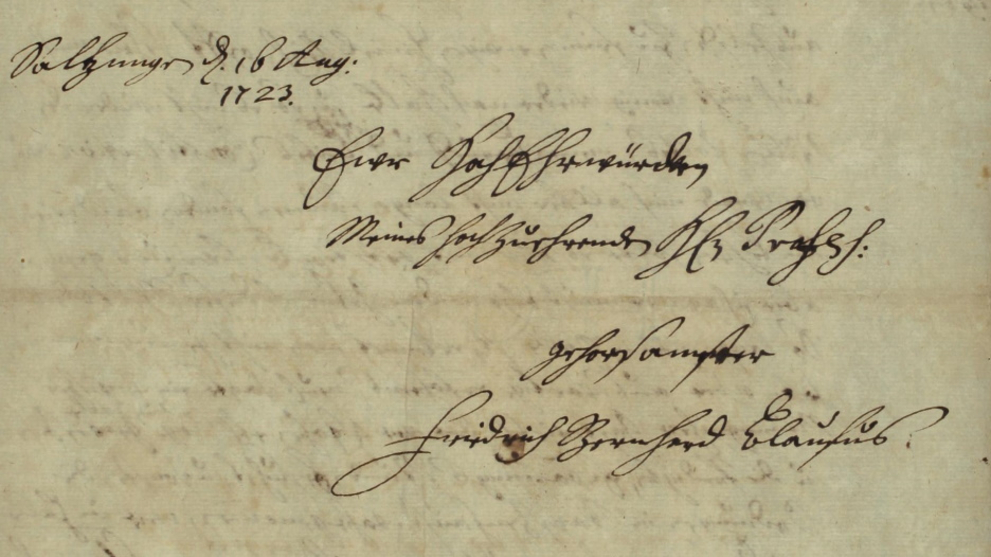 Saltzungen d. 16 Aug:
1723.
Ewr HochEhrwürden
Meines hochzuehrenden H.
gehorsamster
Friedrich Bernhard Clausus.